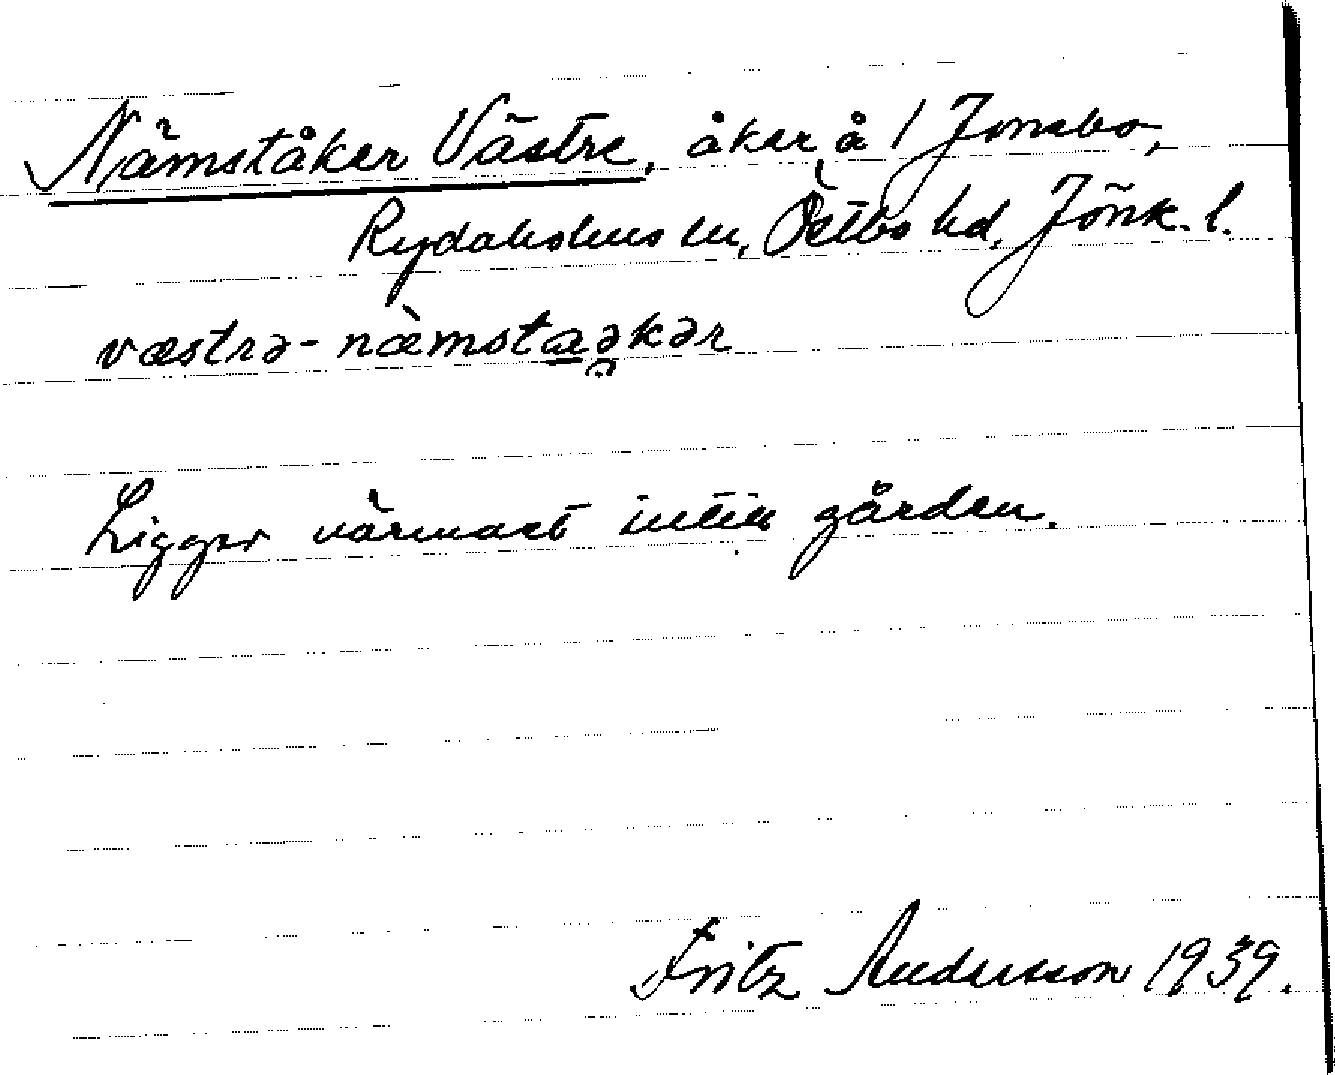 Nämståker Västre, åker å 1 Jonsbo,
Rydaholms sn, Östbo hd, Jönk. l.
væstrə-næ̀mstaə̯kər
Ligger närmast intill gården.
Fritz Andersson 1939.